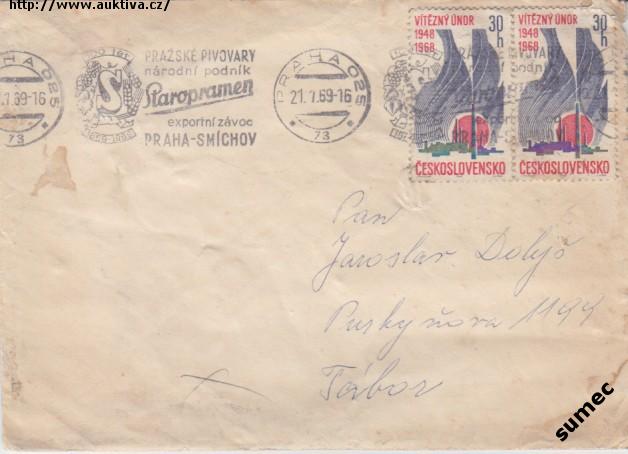 http://www.auktiva.cz/
PRAHA 025
.7.69-16
73
100 let
S
1869-1969
PRAŽSKÉ PIVOVARY
národní podnik
Staropramen
exportní závod
PRAHA-SMÍCHOV
PRAHA 025
21.7.69-16
73
VÍTĚZNÝ ÚNOR
1948
1968
30
h
ČESKOSLOVENSKO
VÍTĚZNÝ ÚNOR
1948
1968
30
h
ČESKOSLOVENSKO
Pan
Jaroslav
Purkyňova 1194
Tábor
sumec